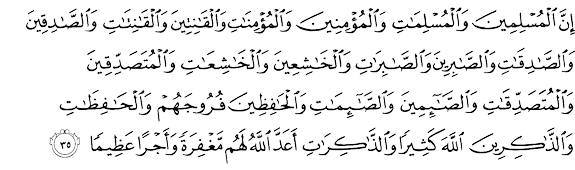 إِنَّ ٱلْمُسْلِمِينَ وَٱلْمُسْلِمَٰتِ وَٱلْمُؤْمِنِينَ وَٱلْمُؤْمِنَٰتِ وَٱلْقَٰنِتِينَ وَٱلْقَٰنِتَٰتِ وَٱلصَّٰدِقِينَ
وَٱلصَّٰدِقَٰتِ وَٱلصَّٰبِرِينَ وَٱلصَّٰبِرَٰتِ وَٱلْخَٰشِعِينَ وَٱلْخَٰشِعَٰتِ وَٱلْمُتَصَدِّقِينَ
وَٱلْمُتَصَدِّقَٰتِ وَٱلصَّٰٓئِمِينَ وَٱلصَّٰٓئِمَٰتِ وَٱلْحَٰفِظِينَ فُرُوجَهُمْ وَٱلْحَٰفِظَٰتِ
وَٱلذَّٰكِرِينَ ٱللَّهَ كَثِيرًا وَٱلذَّٰكِرَٰتِ أَعَدَّ ٱللَّهُ لَهُم مَّغْفِرَةً وَأَجْرًا عَظِيمًا ٣٥